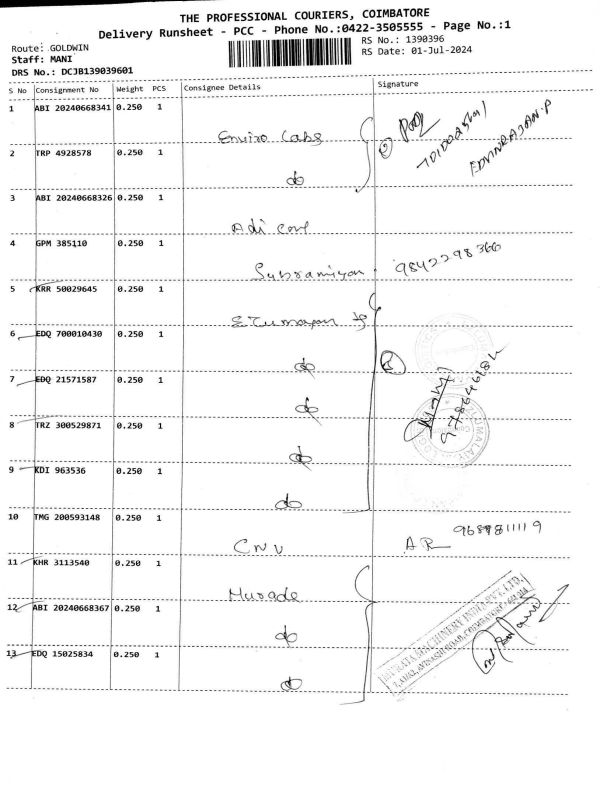 THE PROFESSIONAL COURIERS, COIMBATORE
Delivery Runsheet - PCC - Phone No.:0422-3505555 - Page No.:1
Route: GOLDWIN
RS No.: 1390396
Staff: MANI
RS Date: 01-Jul-2024
DRS No.: DCJB139039601
S No Consignment No Weight PCS Consignee Details Signature
1 ABI 20240668341 0.250 1 Enviro Labs
2 TRP 4928578 0.250 1 do
3 ABI 20240668326 0.250 1 Adi
4 GPM 385110 0.250 1 Subramiyan 9842298366
5 KRR 50029645 0.250 1
6 EDQ 700010430 0.250 1 do
7 EDQ 21571587 0.250 1 do
8 TRZ 300529871 0.250 1 do
9 KDI 963536 0.250 1 do
10 TMG 200593148 0.250 1 CNV AR
11 KHR 3113540 0.250 1
12 ABI 20240668367 0.250 1 do
13 EDQ 15025834 0.250 1 do
MURATA MACHINERY INDIA PVT. LTD.